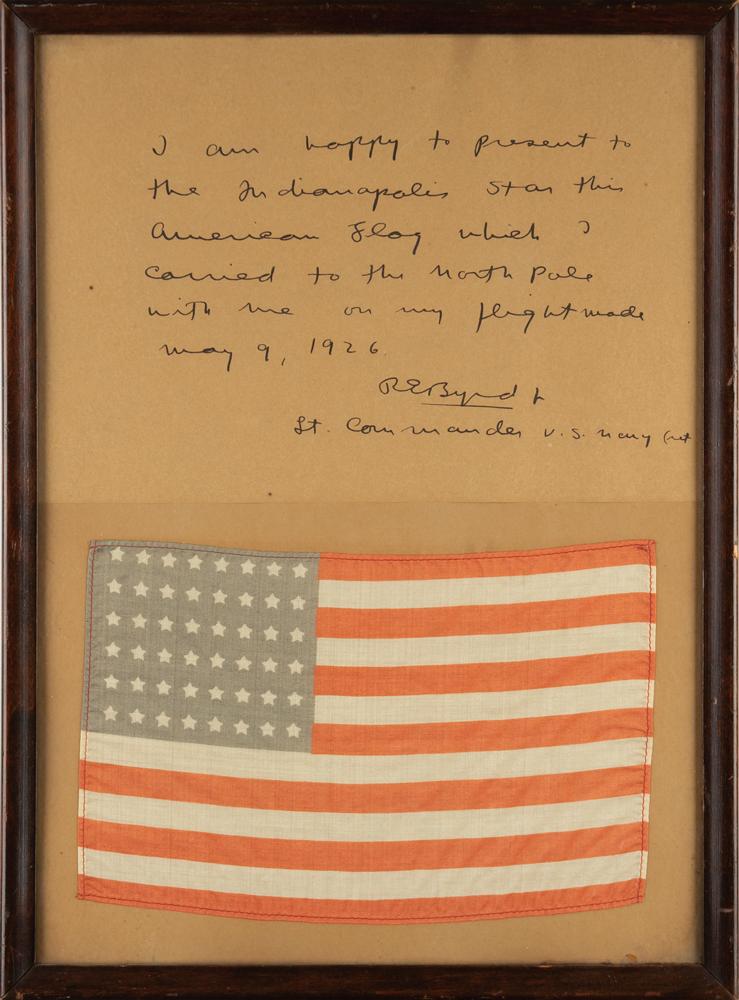 I am happy to present to
the Indianapolis Star this
American Flag which I
carried to the North Pole
with me on my flight made
May 9, 1926.
R E Byrd
Lt. Commander U.S. Navy (ret